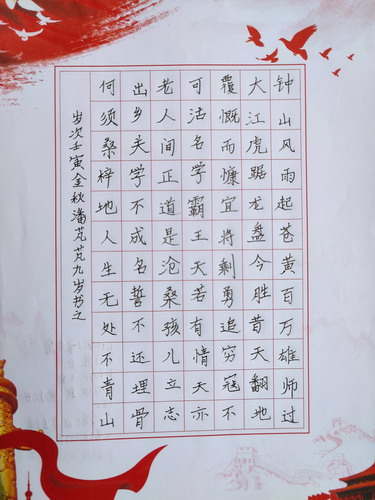 钟山风雨起苍黄百万雄师过
大江虎踞龙盘今胜昔天翻地
覆慨而慷宜将剩勇追穷寇不
可沽名学霸王天若有情天亦
老人间正道是沧桑孩儿立志
出乡关学不成名誓不还埋骨
何须桑梓地人生无处不青山
岁次壬寅金秋潘芃芃九岁书之